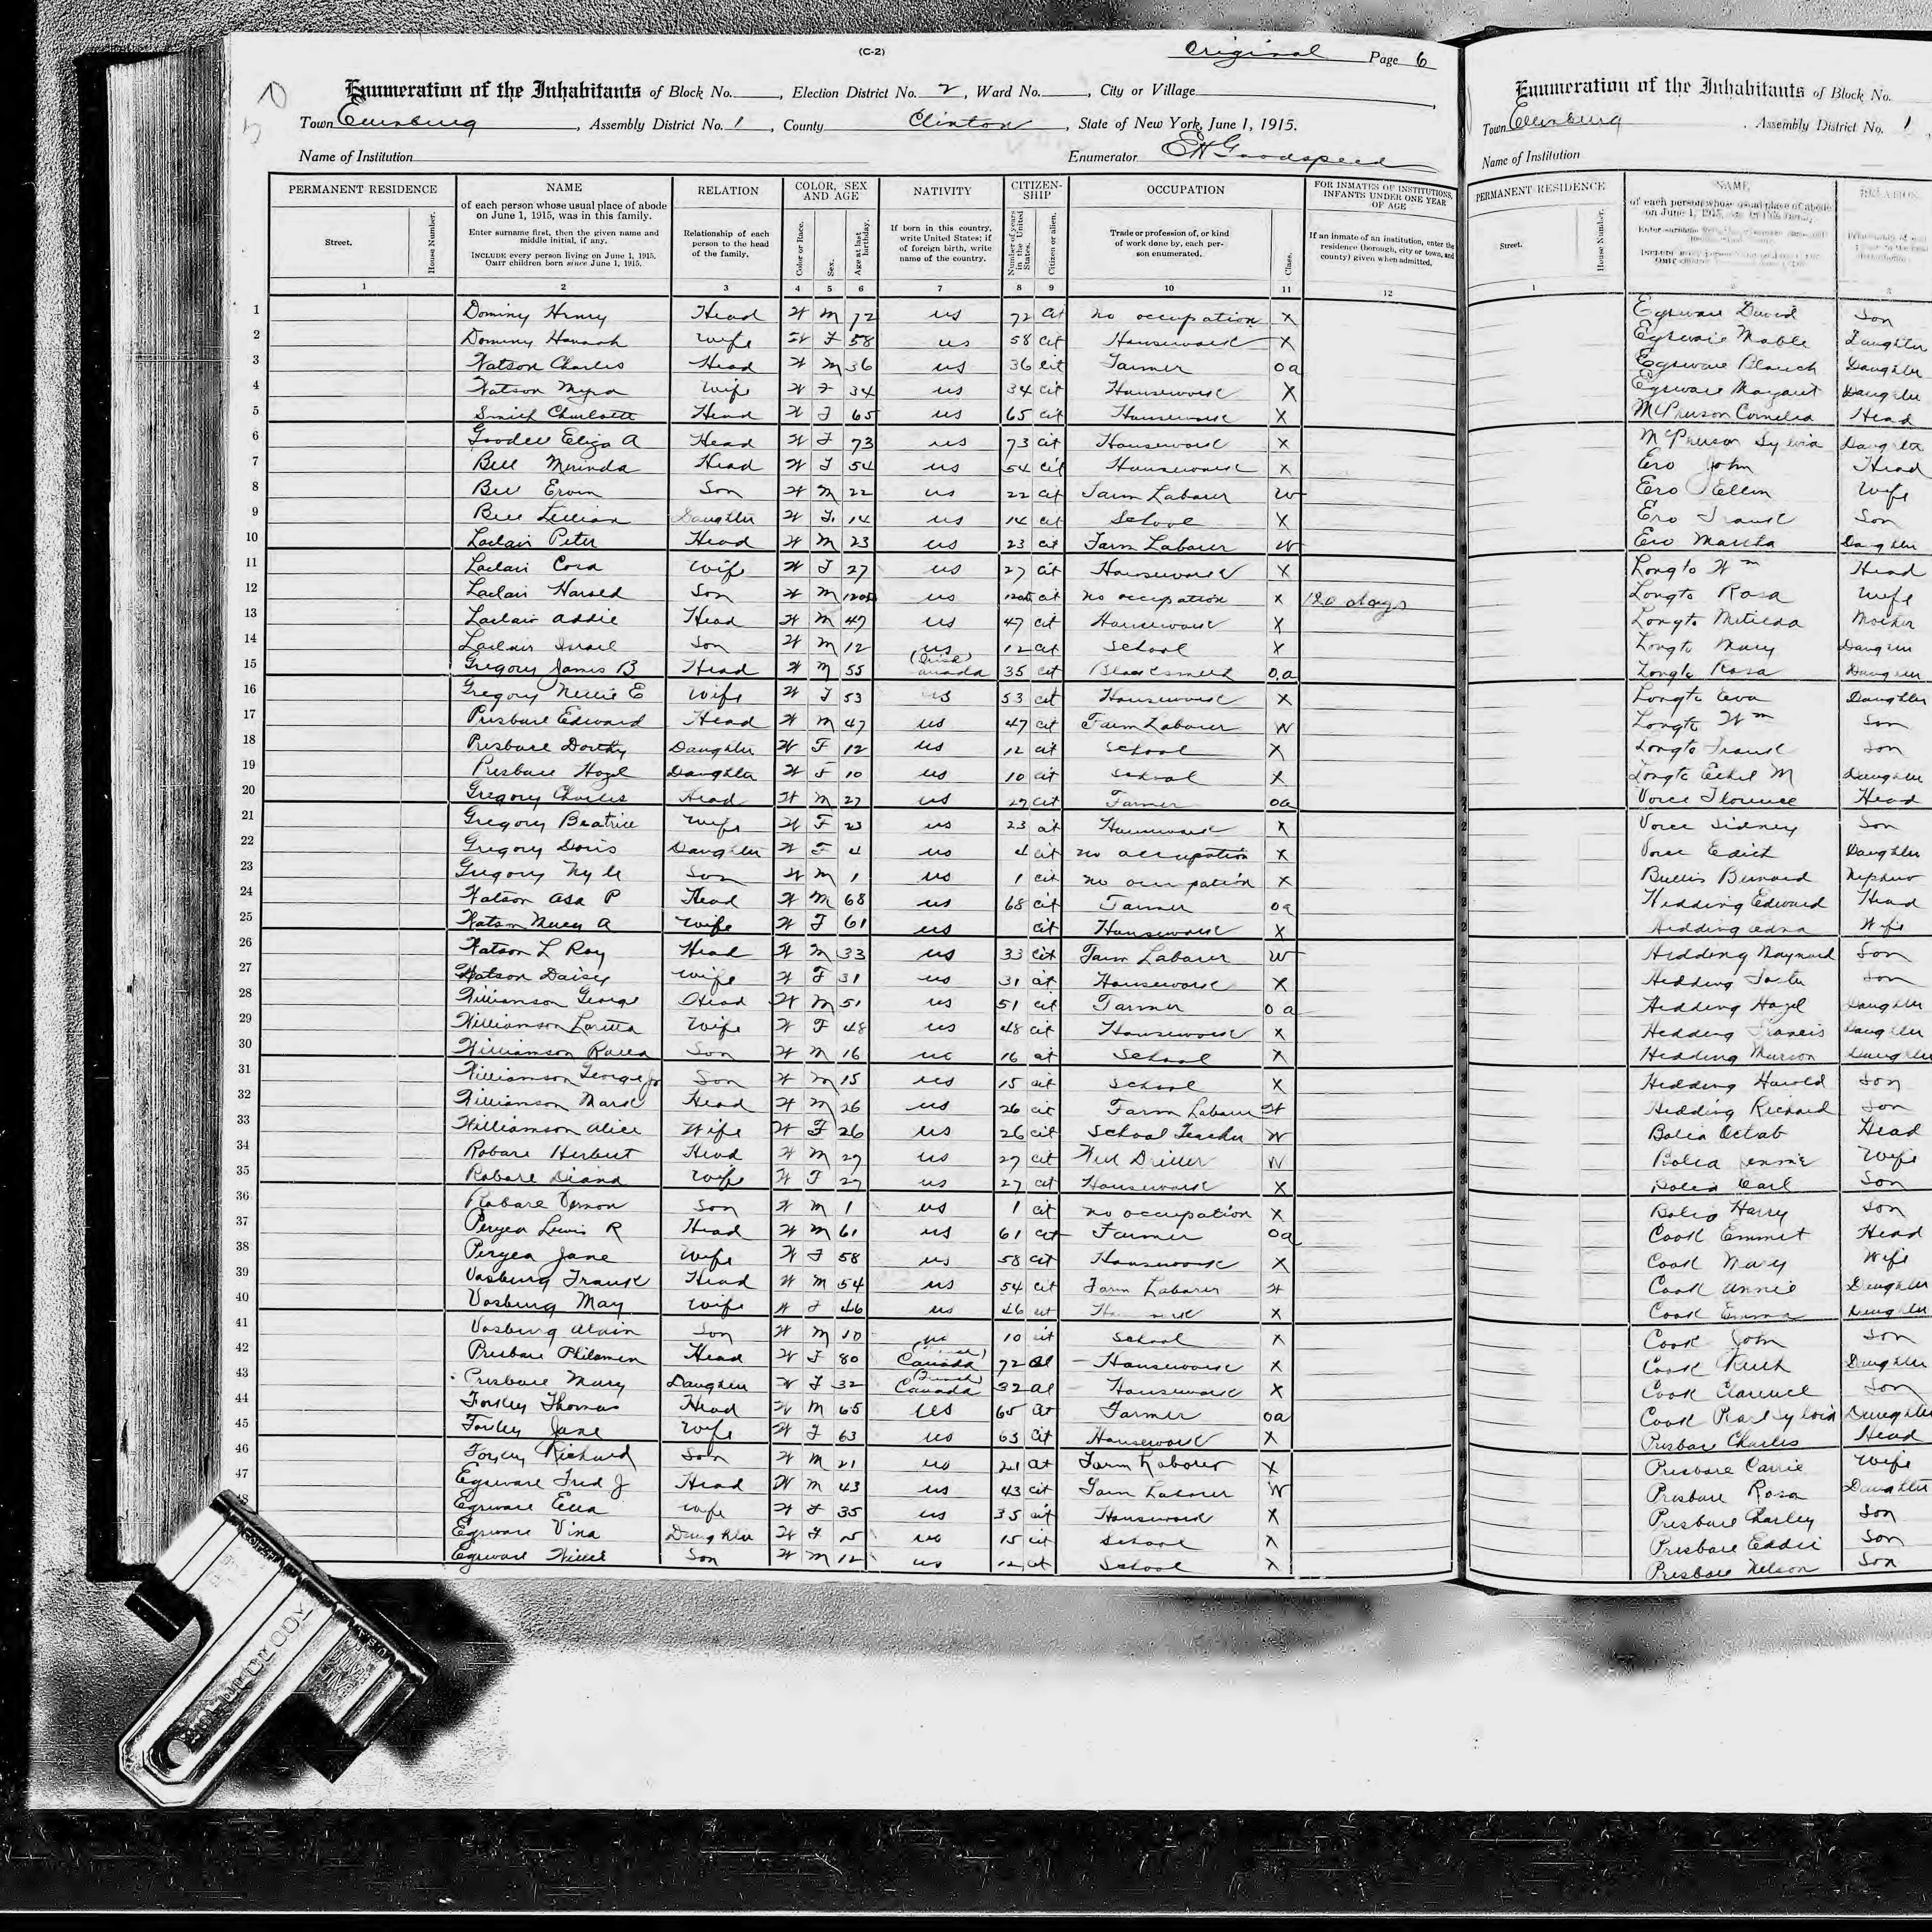 (C-2)
Original Page 6
Enumeration of the Inhabitants of Block No. , Election District No. 2 , Ward No. , City or Village
Town Ellenburg , Assembly District No. 1 , County Clinton , State of New York, June 1, 1915.
Name of Institution Enumerator E H Goodspeed
PERMANENT RESIDENCE NAME RELATION COLOR, SEX AND AGE NATIVITY CITIZENSHIP OCCUPATION FOR INMATES OF INSTITUTIONS, INFANTS UNDER ONE YEAR OF AGE
Street. House Number. of each person whose usual place of abode on June 1, 1915, was in this family. Enter surname first, then the given name and middle initial, if any. INCLUDE every person living on June 1, 1915. OMIT children born since June 1, 1915. Relationship of each person to the head of the family. Color or Race. Sex. Age at last birthday. If born in this country, write United States; if of foreign birth, write name of the country. Number of years in the United States. Citizen or alien. Trade or profession of, or kind of work done by, each person enumerated. Class. If an inmate of an institution, enter the residence (borough, city or town, and county) given when admitted.
1 2 3 4 5 6 7 8 9 10 11 12
1 Dominy Henry Head W M 72 us 72 cit no occupation X
2 Dominy Hannah Wife W F 58 us 58 cit Housework X
3 Watson Charles Head W M 36 us 36 cit Farmer oa
4 Watson Myra Wife W F 34 us 34 cit Housework X
5 Smith Charlotte Head W F 65 us 65 cit Housework X
6 Eliza A Head W F 73 us 73 cit Housework X
7 Bell Head W F 54 us 54 cit Housework X
8 Bell Ervin Son W M 22 us 22 cit Farm Laborer W
9 Bell Lillian Daughter W F 14 us 14 cit School X
10 Laclair Peter Head W M 23 us 23 cit Farm Laborer W
11 Laclair Cora Wife W F 27 us 27 cit Housework X
12 Laclair Harold Son W M us cit no occupation X 120 days
13 Laclair Addie Head W M 47 us 47 cit Housework X
14 Laclair Israel Son W M 12 us 12 cit School X
15 Gregory James B Head W M 55 Canada 35 cit Blacksmith o.a
16 Gregory Nellie E Wife W F 53 us 53 cit Housework X
17 Presbare Edward Head W M 47 us 47 cit Farm Laborer W
18 Presbare Dorothy Daughter W F 12 us 12 cit School X
19 Presbare Hazel Daughter W F 10 us 10 cit School X
20 Gregory Charles Head W M 27 us 27 cit Farmer oa
21 Gregory Beatrice Wife W F 23 us 23 cit Housework X
22 Gregory Doris Daughter W F 4 us 4 cit no occupation X
23 Gregory Son W M 1 us 1 cit no occupation X
24 Watson Asa P Head W M 68 us 68 cit Farmer oa
25 Watson A Wife W F 61 us cit Housework X
26 Watson L Roy Head W M 33 us 33 cit Farm Laborer W
27 Watson Daisy Wife W F 31 us 31 cit Housework X
28 Williamson George Head W M 51 us 51 cit Farmer oa
29 Williamson Loretta Wife W F 48 us 48 cit Housework X
30 Williamson Son W M 16 us 16 cit School X
31 Williamson George Jr Son W M 15 us 15 cit School X
32 Williamson Mark Head W M 26 us 26 cit Farm Laborer W
33 Williamson Alice Wife W F 26 us 26 cit School Teacher W
34 Robare Herbert Head W M 27 us 27 cit Well Driller W
35 Robare Diana Wife W F 27 us 27 cit Housework X
36 Robare Vernon Son W M 1 us 1 cit no occupation X
37 Peryea Lewis R Head W M 61 us 61 cit Farmer oa
38 Peryea Jane Wife W F 58 us 58 cit Housework X
39 Vosburg Frank Head W M 54 us 54 cit Farm Laborer W
40 Vosburg May Wife W F 46 us 46 cit X
41 Vosburg Alvin Son W M 10 us 10 cit School X
42 Presbare Philamen Head W F 80 Canada 72 al Housework X
43 Presbare Mary Daughter W F 32 (French) Canada 32 al Housework X
44 Forkey Thomas Head W M 65 us 65 cit Farmer oa
45 Forkey Jane Wife W F 63 us 63 cit Housework X
46 Forkey Richard Son W M 21 us 21 cit Farm Laborer X
47 Egsware Fred J Head W M 43 us 43 cit Farm Laborer W
48 Egsware Ella Wife W F 35 us 35 cit Housework X
Egsware Vina Daughter W F us 15 cit School X
Egsware Willie Son W M 12 us 12 cit School X
Enumeration of the Inhabitants of Block No.
Town Ellenburg , Assembly District No. 1
Name of Institution
PERMANENT RESIDENCE NAME RELATION
Street. House Number. of each person whose usual place of abode on June 1, 1915,
Egsware David Son
Egsware Mable Daughter
Egsware Blanch Daughter
Egsware Margaret Daughter
McPherson Cornelia Head
McPherson Sylvia Daughter
Ero John Head
Ero Ellen Wife
Ero Frank Son
Ero Martha Daughter
Longto Wm Head
Longto Rosa Wife
Longto Matilda Mother
Longto Mary Daughter
Longto Rosa Daughter
Longto Eva Daughter
Longto Wm Son
Longto Frank Son
Longto Ethel M Daughter
Vorce Florence Head
Vorce Sidney Son
Vorce Edith Daughter
Bullis Bernard Nephew
Hedding Edward Head
Hedding Edna Wife
Hedding Maynard Son
Hedding Son
Hedding Hazel Daughter
Hedding Francis Daughter
Hedding Marion Daughter
Hedding Harold Son
Hedding Richard Son
Bolia Octab Head
Bolia Jennie Wife
Bolia Earl Son
Bolia Harry Son
Cook Emmet Head
Cook Mary Wife
Cook Annie Daughter
Cook Emma Daughter
Cook John Son
Cook Ruth Daughter
Cook Clarence Son
Cook Daughter
Presbare Charles Head
Presbare Carrie Wife
Presbare Rosa Daughter
Presbare Charley Son
Presbare Eddie Son
Presbare Nelson Son